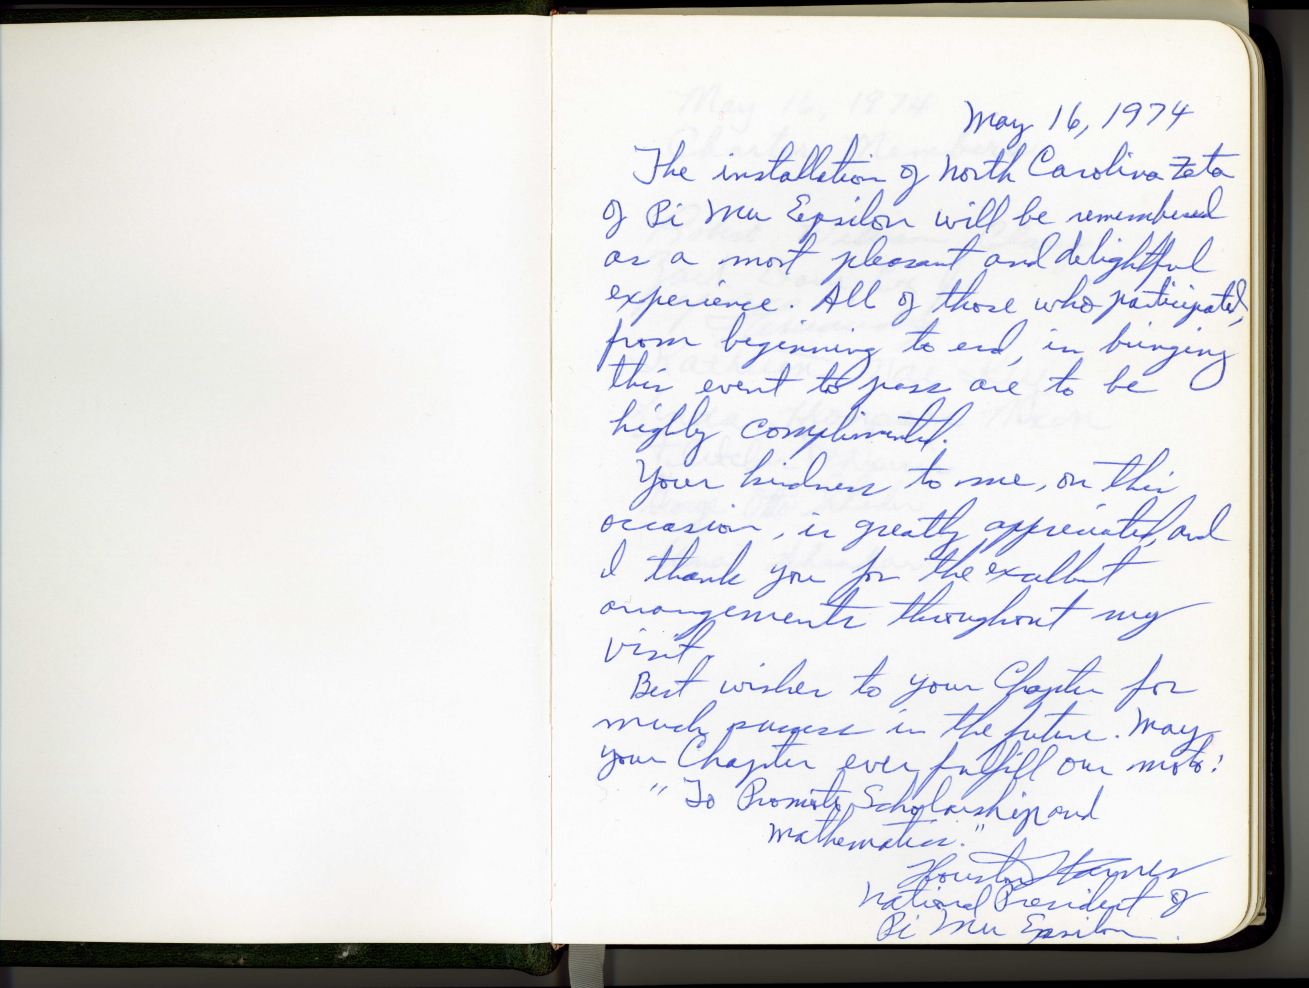 May 16, 1974
The installation of North Carolina Zeta
of Pi Mu Epsilon will be remembered
as a most pleasant and delightful
experience. All of those who participated,
from beginning to end, in bringing
this event to pass are to be
highly complimented.
Your kindness to me, on this
occasion, is greatly appreciated, and
I thank you for the excellent
arrangements throughout my
visit.
Best wishes to your Chapter for
much success in the future. May
your Chapter ever fulfill our motto:
"To Promote Scholarship and
Mathematics."
Houston Karnes
National President of
Pi Mu Epsilon.